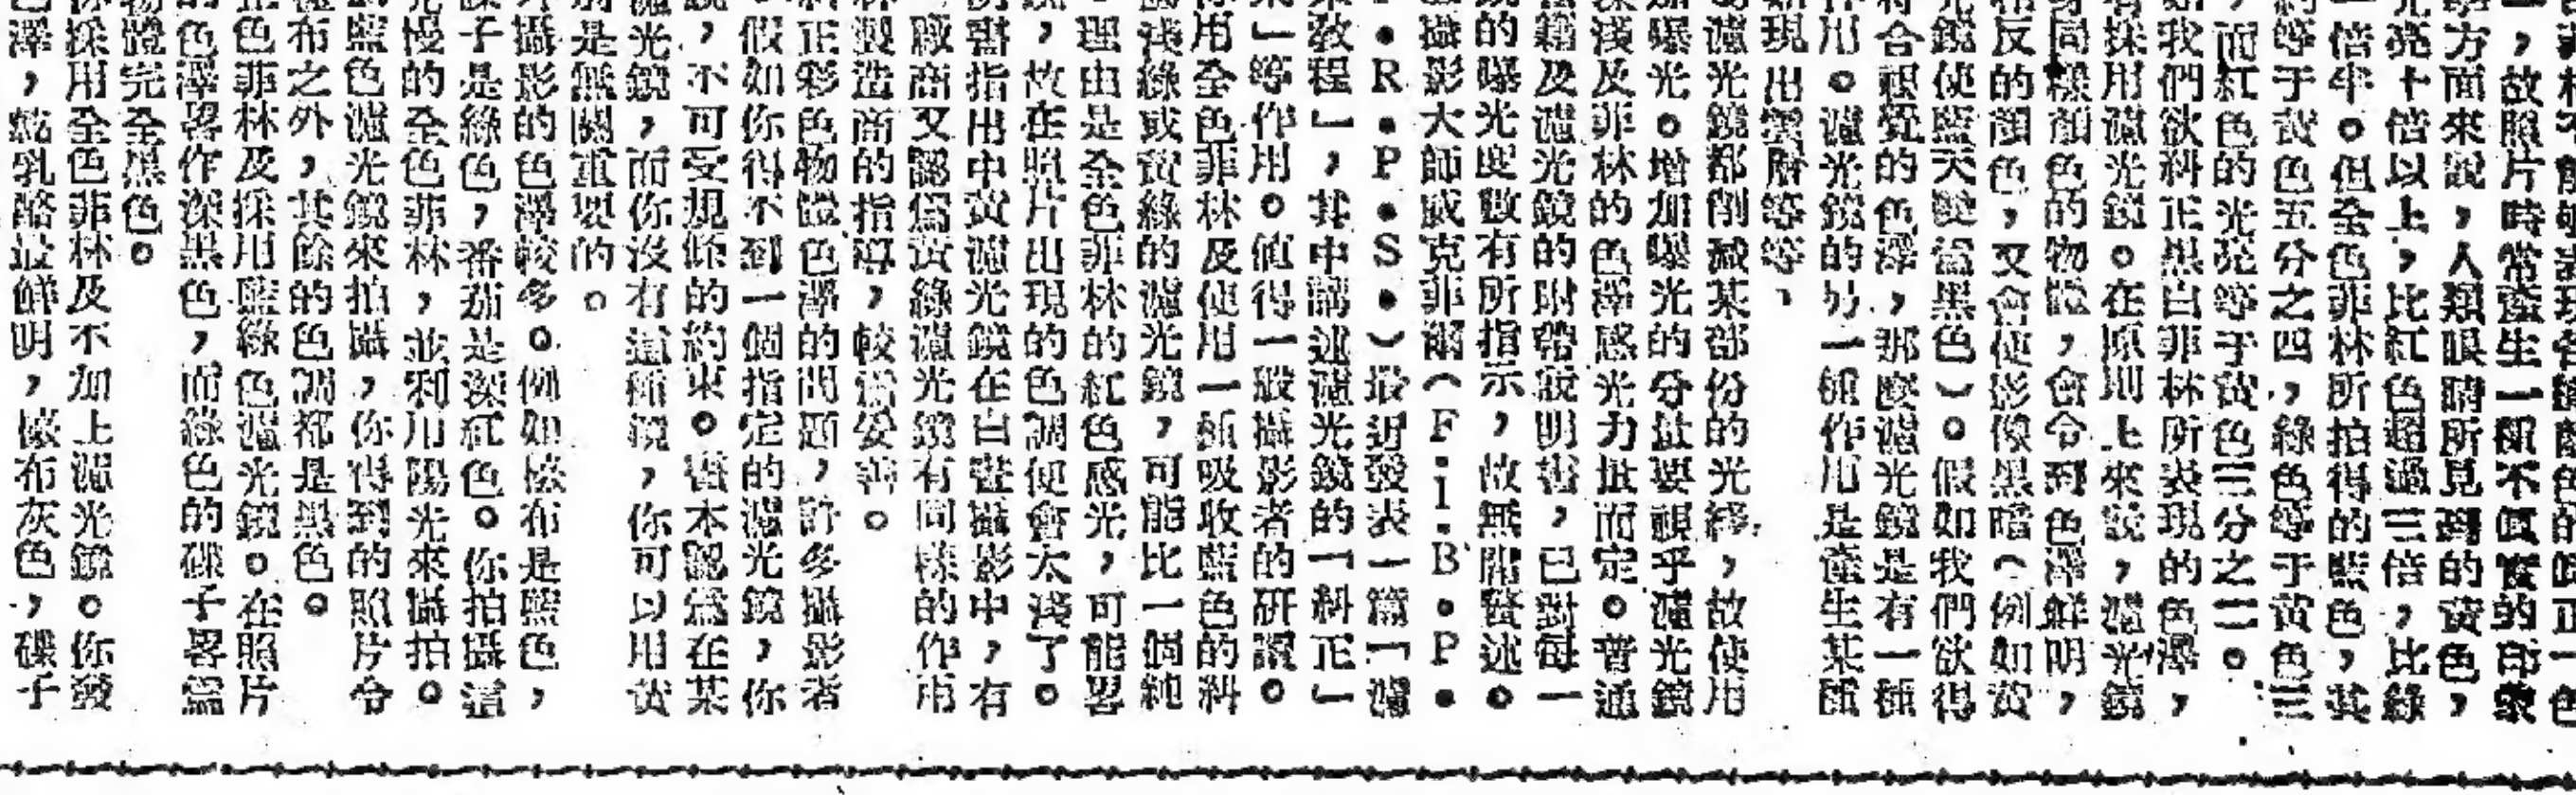 一色
，故照片時常產生一種不眞實的印象
方面來說，人類眼睛所見到的黃色，
光亮十倍以上，比紅色超過三倍，比綠
一倍半。但全色菲林所拍得的藍色，其
等于黃色五分之四，綠色等于黃色三
，而紅色的光亮等于黃色三分之一。
我們欲糾正黑白菲林所表現的色澤，
採用濾光鏡。在原則上來說，濾光鏡
同樣顏色的物體，會令到色澤鮮明，
反的顏色，又會使影像黑暗（例如黃
光鏡使藍天變當黑色）。假如我們欲得
符合視覺的色澤，那麼濾光鏡是有一種
作用。濾光鏡的另一種作用是產生某種
現出雲層等等、
濾光鏡都削減某部份的光綫，故使用
加曝光。增加曝光的分量要視乎濾光鏡
深淺及菲林的色澤感光力量而定。普通
書籍及濾光鏡的附帶說明書，已對每一
的曝光度數有所指示，故無關贅述。
攝影大師威克菲爾（F.i.B.P.
．R．P．S．）最近發表一篇「濾
教程」，其中講述濾光鏡的「糾正」
」等作用。值得一般攝影者的研讀。
用全色菲林及使用一種吸收藍色的糾
淺綠或黃綠的濾光鏡，可能比一個純
理由是全色菲林的紅色感光，可能畧
，故在照片出現的色調便會太淺了。
書指出中黃濾光鏡在白晝攝影中，有
廠商又認爲黃綠濾光鏡有同樣的作用
製造商的指導，較當妥善。
正彩色物體色澤的問題，許多攝影者
假如你得不到一個指定的濾光鏡，你
，不可受規條的約束。書本認爲在某
濾光鏡，而你沒有這種鏡，你可以用黃
是無關重要的。
攝影的色澤較多。例如檯布是藍色，
子是綠色，番茄是深紅色。你拍攝這
慢的全色菲林，並利用陽光來攝拍。
藍色濾光鏡來拍攝，你得到的照片今
布之外，其餘的色調都是黑色。
色菲林及採用藍綠色濾光鏡。在照片
的色澤畧作深黑色，而綠色的碟子畧當
物體完全黑色。
採用全色菲林及不加上濾光鏡。你發
色澤，乳酪最鮮明，檯布灰色，碟子